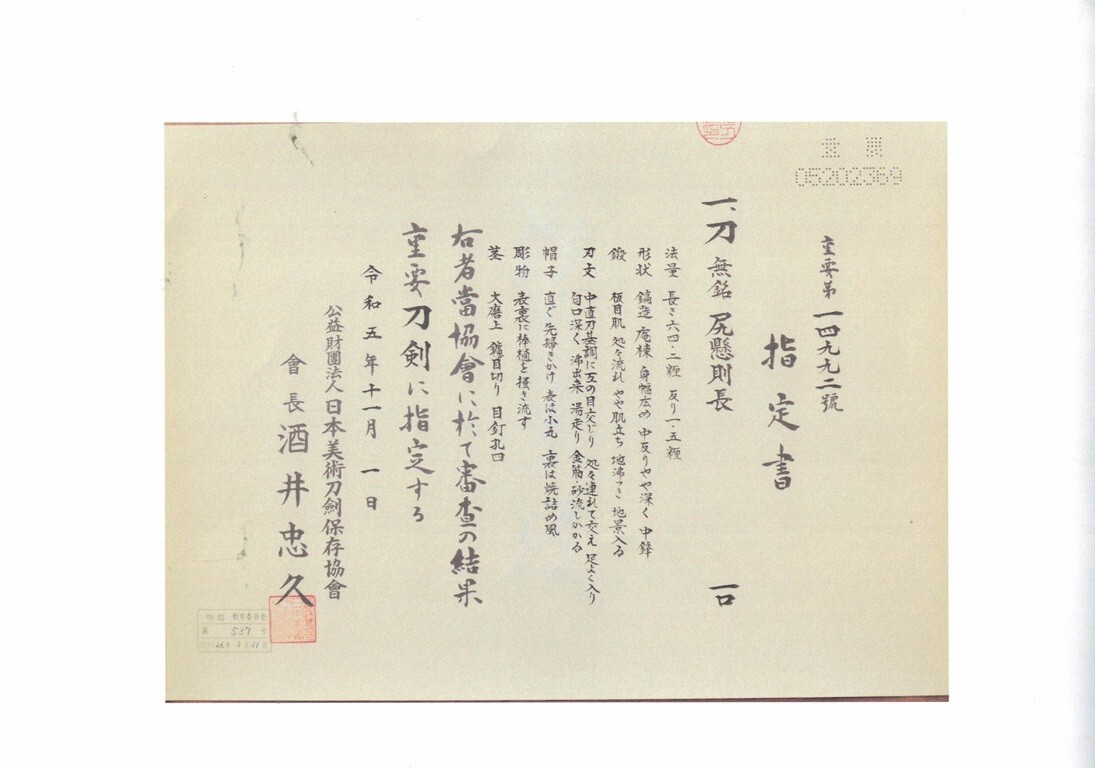 重要
05202369
重要第一四九九二號
指定書
一、刀 無銘 尻懸則長 一口
法量 長さ六四・二糎 反り一・五糎
形状 鎬造 庵棟 身幅広め 中反りやや深く 中鋒
鍛 板目肌 処々流れ やや肌立ち 地沸つき 地景入る
刃文 中直刃基調に互の目交じり 処々連れて交え 足よく入り
匂口深く 沸出来 湯走り 金筋・砂流しかかる
帽子 直ぐ 先掃きかけ 表は小丸 裏は焼詰め風
彫物 表裏に棒樋を掻き流す
茎 大磨上 鑢目切り 目釘孔四
右者當協會に於て審査の結果
重要刀剣に指定する
令和五年十一月一日
公益財團法人日本美術刀劍保存協會
會長 酒井忠久
教育委員会
第 537 号